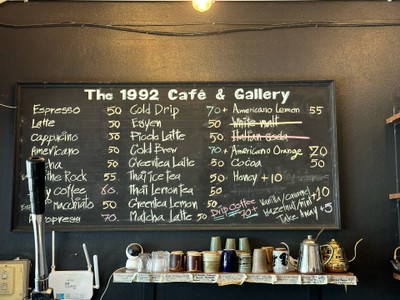 The 1992 Café & Gallery
Espresso 50 Cold Drip 70+ Americano Lemon 55
Latte 50 50 White malt
Cappucino 50 Latte 50 Italian soda
Americano 50 Cold Brew 70+ Americano Orange 70
50 Greentea Latte 50 Cocoa 50
the Rock 55 Thai Tea 50 Honey +10
Coffee 80 Thai Lemon Tea 50
50 Greentea Lemon 50 Drip Coffee 70+ Vanilla/caramel +10
70 Matcha Latte 50 Hazelnut/mint
Take Away +5